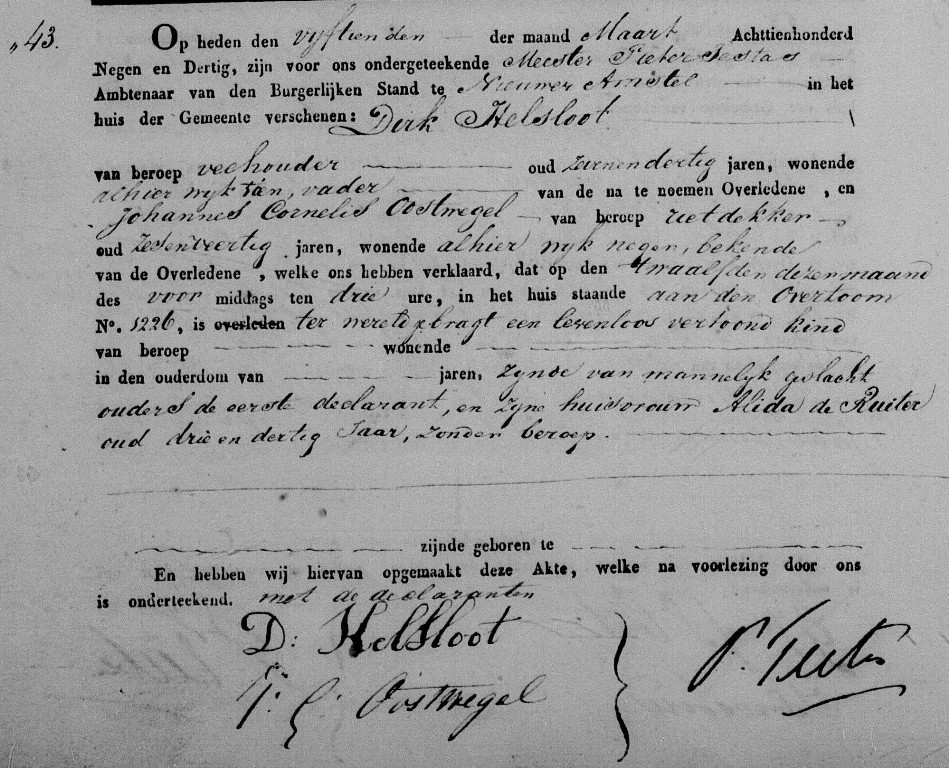 „43.
Op heden den vyftienden der maand Maart Achttienhonderd
Negen en Dertig, zijn voor ons ondergeteekende Meester Pieter
Ambtenaar van den Burgerlijken Stand te Nieuwer Amstel in het
huis der Gemeente verschenen: Dirk Helsloot
van beroep veehouder oud zevenendertig jaren, wonende
alhier wyk , vader van de na te noemen Overledene , en
Johannes Cornelis Oostwegel van beroep rietdekker
oud zesenveertig jaren, wonende alhier wyk negen, bekende
van de Overledene , welke ons hebben verklaard, dat op den twaalfden dezer maand
des voor middags ten drie ure, in het huis staande aan den Overtoom
No. 1226, is overleden ter wereld gebragt een levenloos vertoond kind
van beroep wonende
in den ouderdom van jaren, zynde van mannelyk geslacht
ouders de eerste declarant, en zyne huisvrouw Alida de Ruiter
oud drie en dertig Jaar, zonder beroep.
zijnde geboren te
En hebben wij hiervan opgemaakt deze Akte, welke na voorlezing door ons
is onderteekend. met de declaranten
D: Helsloot
J: C: Oostwegel